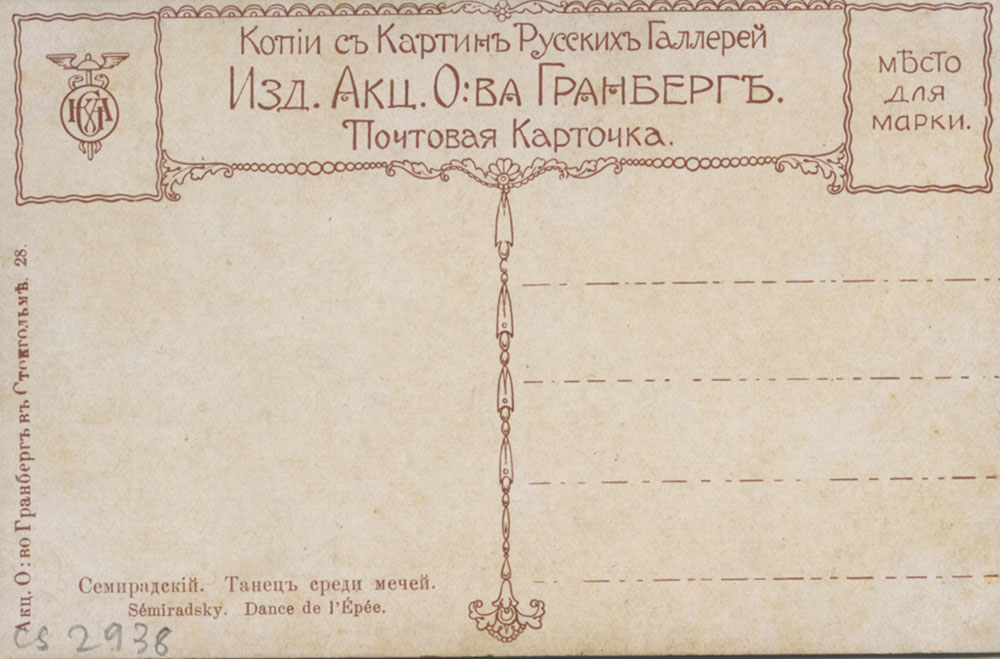 Копіи съ Картинъ Русскихъ Галлерей
Изд. Акц. О:ва Гранбергъ.
Почтовая Карточка.
мѣсто
для
марки.
Акц. О:во Гранбергъ въ Стокгольмѣ. 28.
Семирадскій. Танецъ среди мечей.
Sémiradsky. Dance de l'Épée.
CS 2938